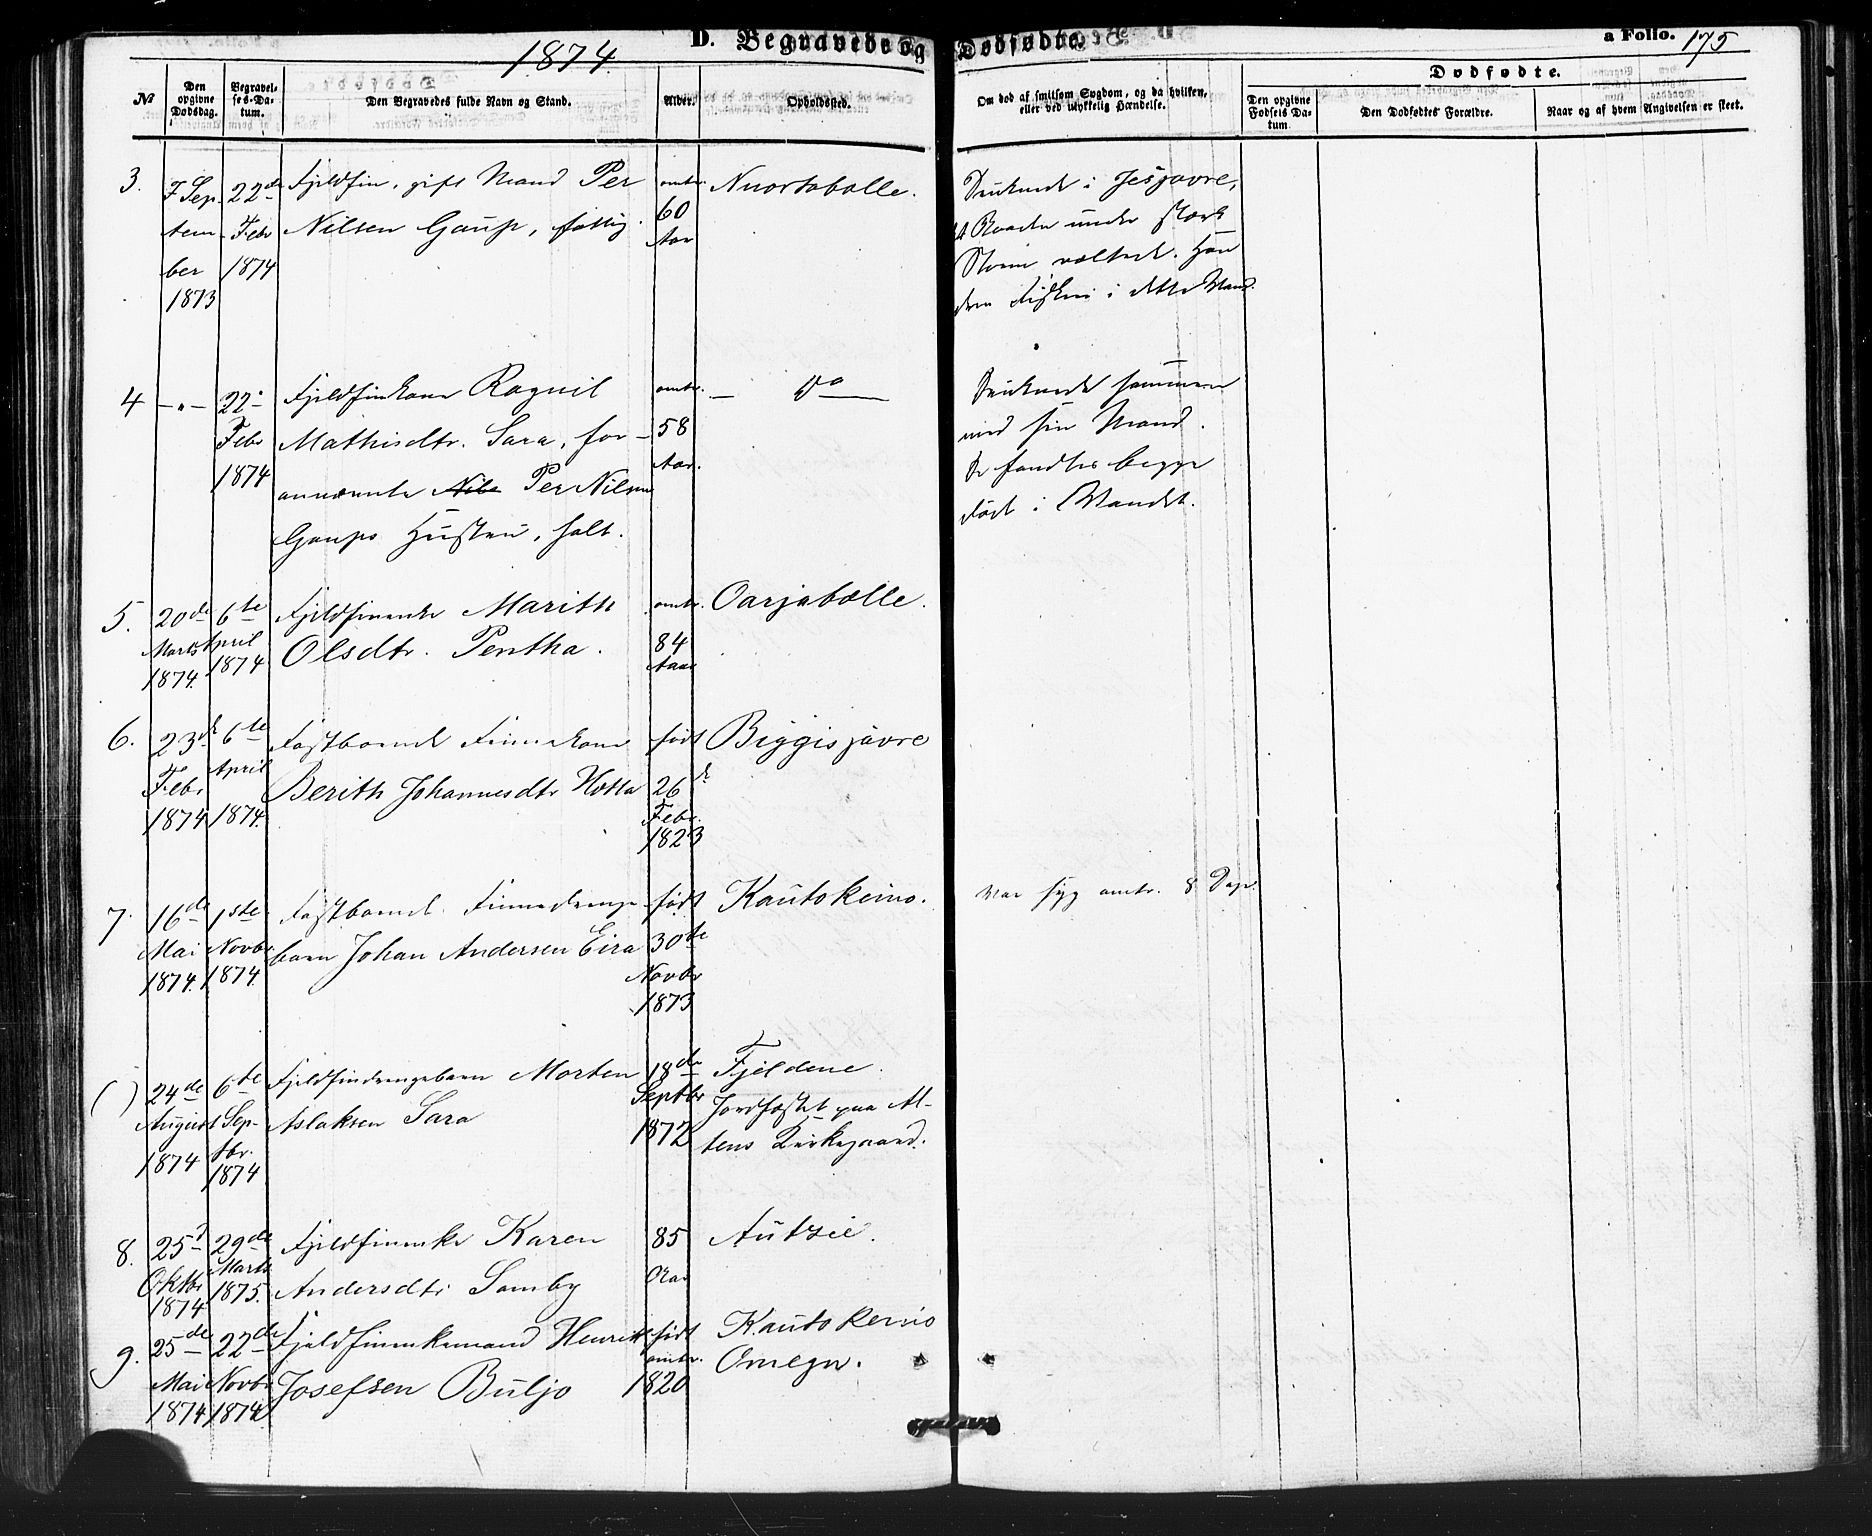 1874.
D. Begravede og Dødfødte.
a Folio. 175
№
Den opgivne Dødsdag.
Begravelses-Datum.
Den Begravedes fulde Navn og Stand.
Alder.
Opholdssted.
Om død af smitsom Sygdom, og da hvilken, eller ved ulykkelig Hændelse.
Dødfødte.
Den opgivne Fødsels Datum.
Den Dødfødtes Forældre.
Naar og af hvem Angivelsen er skeet.
3.
7 Sep-
tem
ber
1873
22de
Febr
1874
Fjeldfin, gift Mand Per
Nilsen Gaup, fattig.
omtr.
60
Aar
Nuortabælle.
Druknede i Jesjavre,
at Baaden under stærk
Storm væltede. Han
drev Fiskeri i dette Vand.
4
-„-
22-
Febr
1874
Fjeldfinkone Ragnil
Mathisdtr. Sara, for-
annævnte Nils Per Nilsen
Gaups Hustru, halt.
omtr.
58
Aar.
— Do —
Druknede sammen
med sin Mand.
De fandtes begge
død i Vandet.
5.
20de
Marts
1874.
6te
April
1874
Fjeldfinenke Marith
Olsdtr. Pentha.
omtr.
84
Aar
Oarjabælle.
6.
23de
Febr
1874
6te
April
1874.
Fastboende Finnekone
Berith Johannesdtr Hætta
født
26de
Febr.
1823
Biggisjavre
7.
16de
Mai
1874.
1ste
Novbr
1874.
Fastboende Finnedrenge
barn Johan Andersen Eira
født
30te
Novbr
1873
Kautokeino.
Var syg omtr. 8 Dage.
( )
24de
August
1874
6te
Sep-
tbr.
1874
Fjeldfindrengebarn Morten
Aslaksen Sara
18de
Septbr
1872
Fjeldene.
Jordfæstet paa Al-
tens Kirkegaard.
8.
25d
Oktbr
1874
29de
Marts
1875.
Fjeldfinenke Karen
Andersdtr Somby
85
Aar
Autzie.
9.
25de
Mai
1874
22de
Novbr
1874
Fjeldfinenkemand Henrik
Josefsen Buljo
født
omtr.
1820
Kautokeino
Omegn.